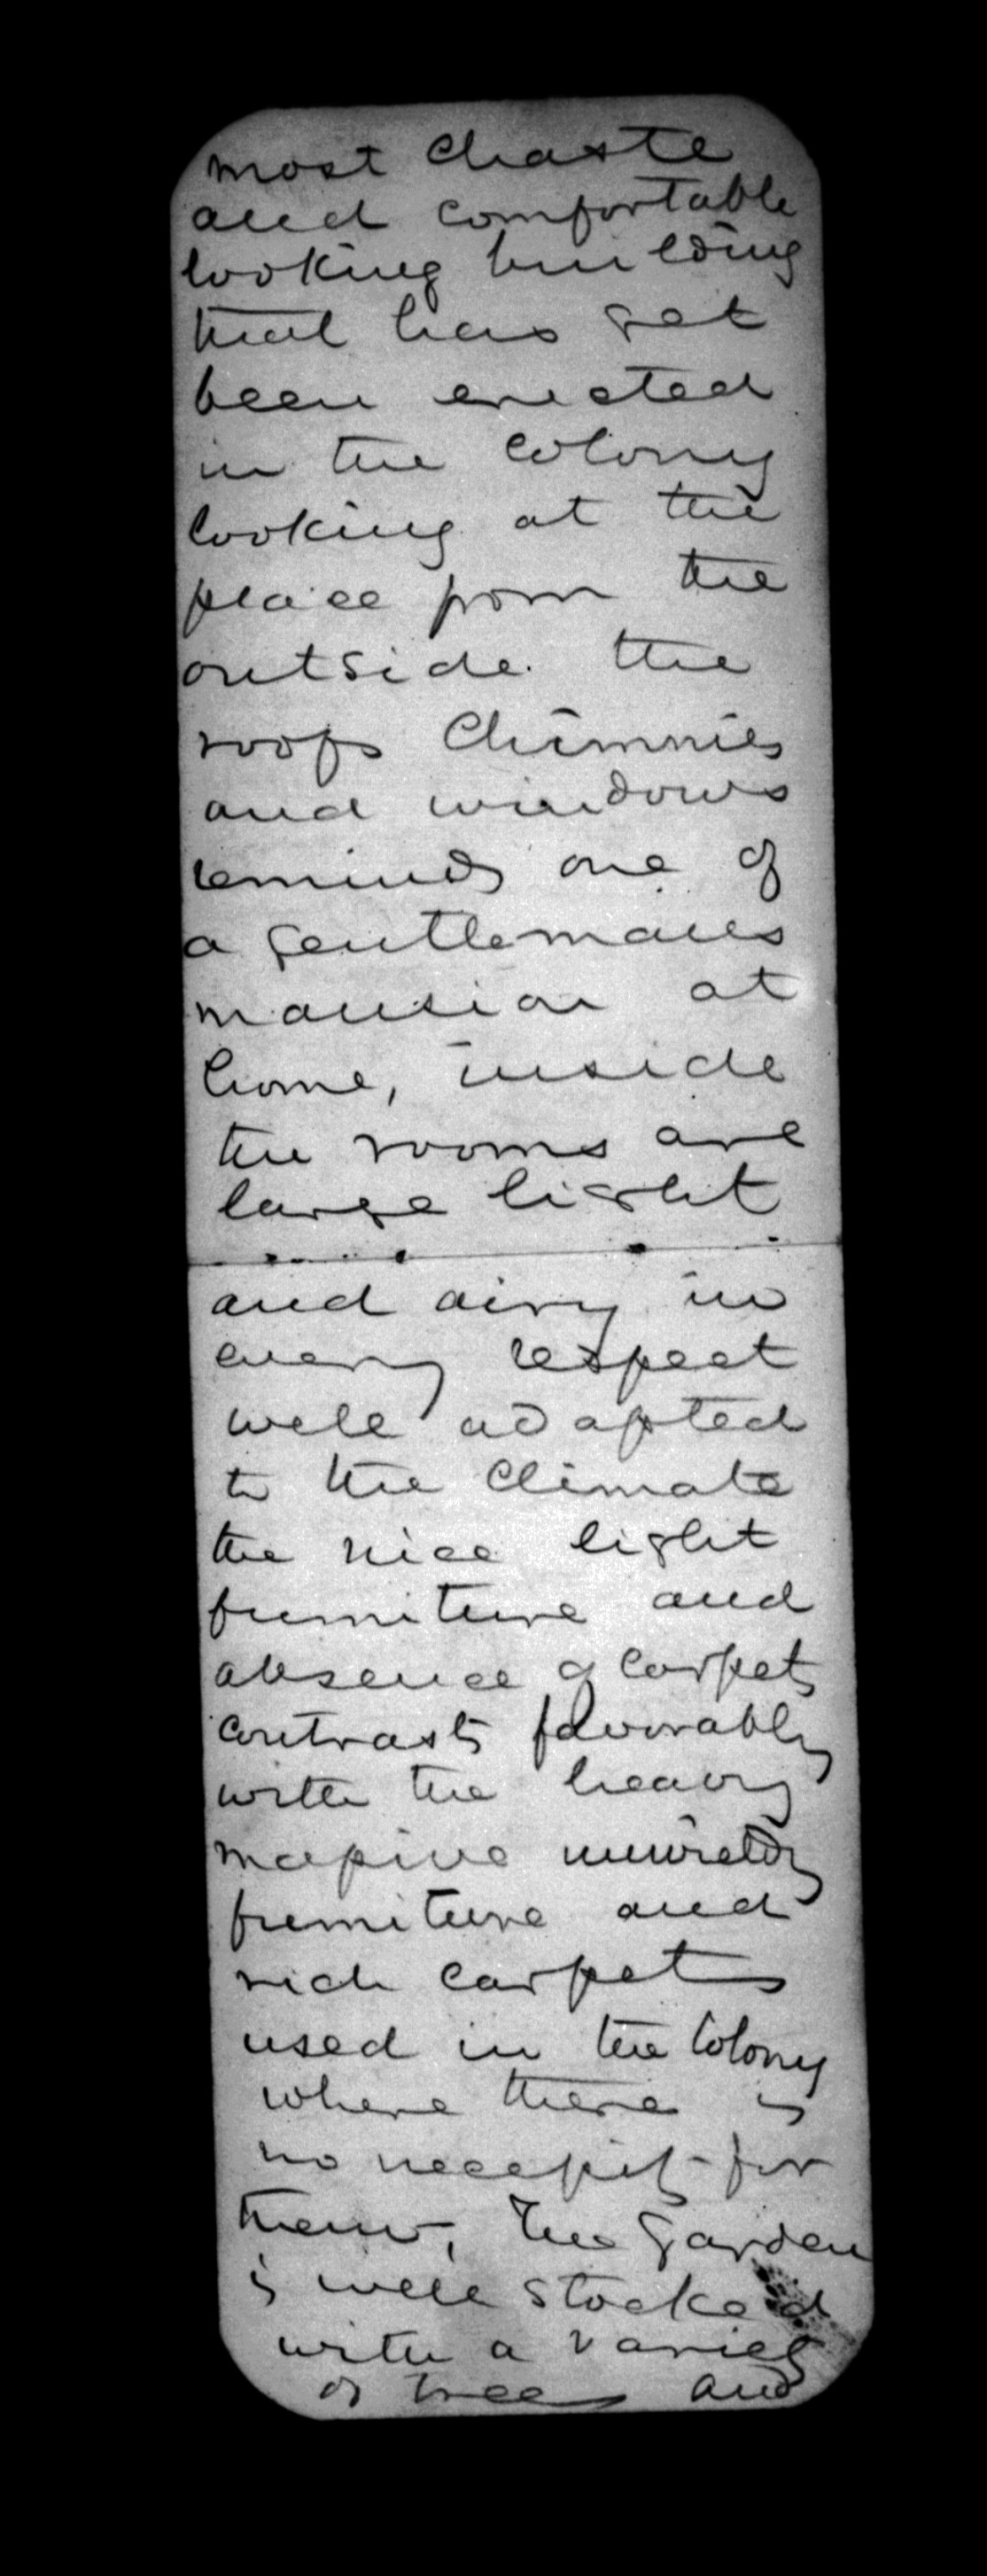 most chaste
and comfortable
looking building
that has yet
been erected
in the colony
looking at the
place from the
outside. the
roofs Chimnies
and windows
reminds one of
a gentlemans
mansion at
home, inside
the rooms are
large light
and airy in
every respect
well adapted
to the Climate
the nice light
furniture and
absence of carpets
contrasts favorably
with the heavy
massive unwieldy
furniture and
rich carpets
used in the Colony
where there is
no necessity for
them, The garden
is well stocked
with a variety
of trees and